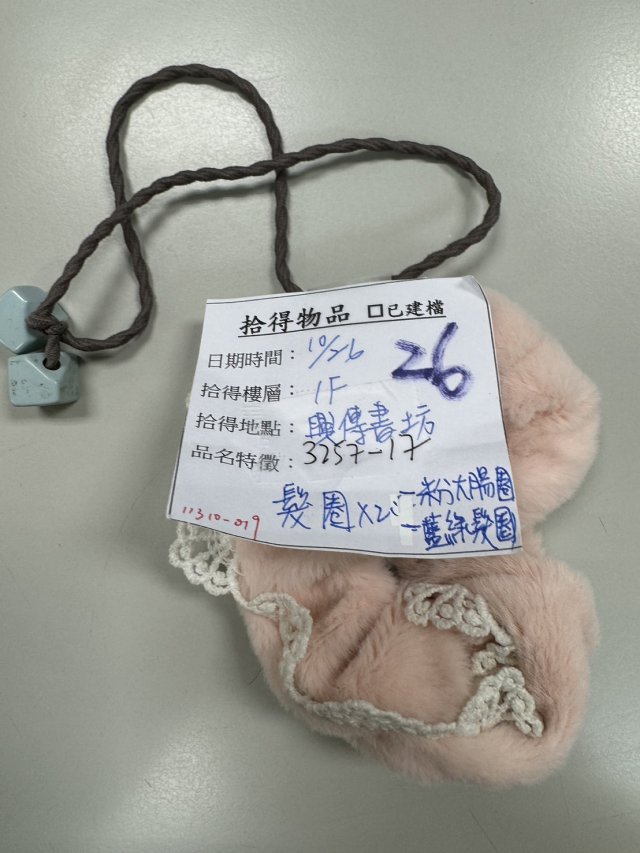 拾得物品 □已建檔
日期時間： 10/26
26
拾得樓層： 1F
拾得地點： 興傳書坊
品名特徵： 3257-17
髮圈x2
一粉大腸圈
一藍綠髮圈
11310-019